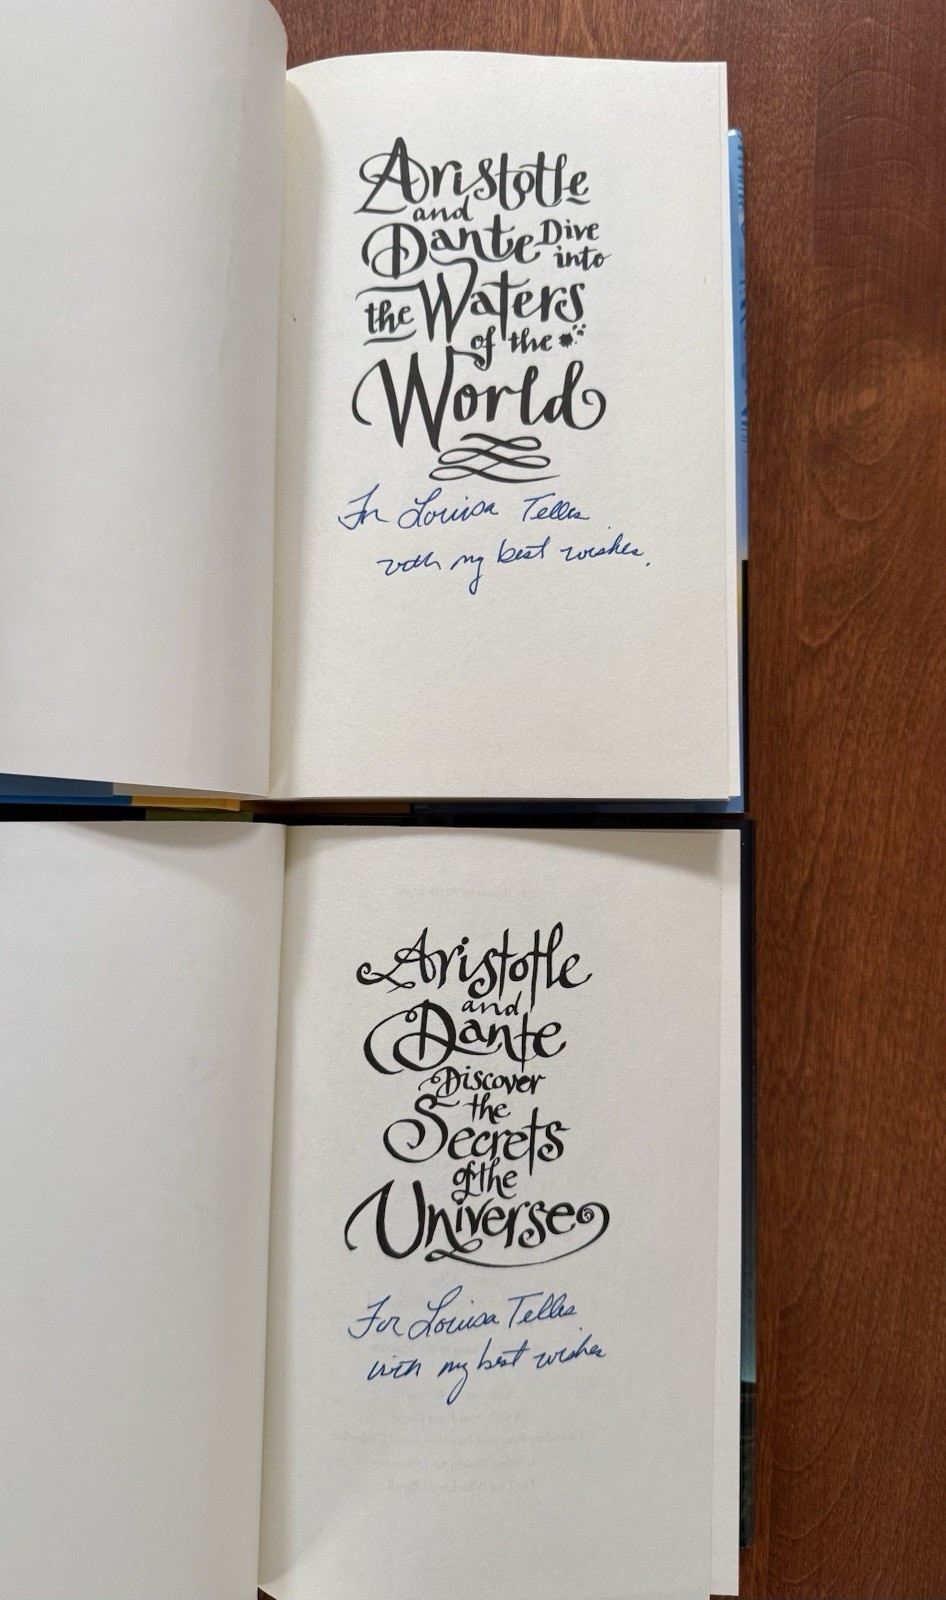 Aristotle
and
Dante Dive
into
the Waters
of the
World
For Louisa Telles
with my best wishes.
Aristotle
and
Dante
Discover
the
Secrets
of the
Universe
For Louisa Telles
with my best wishes